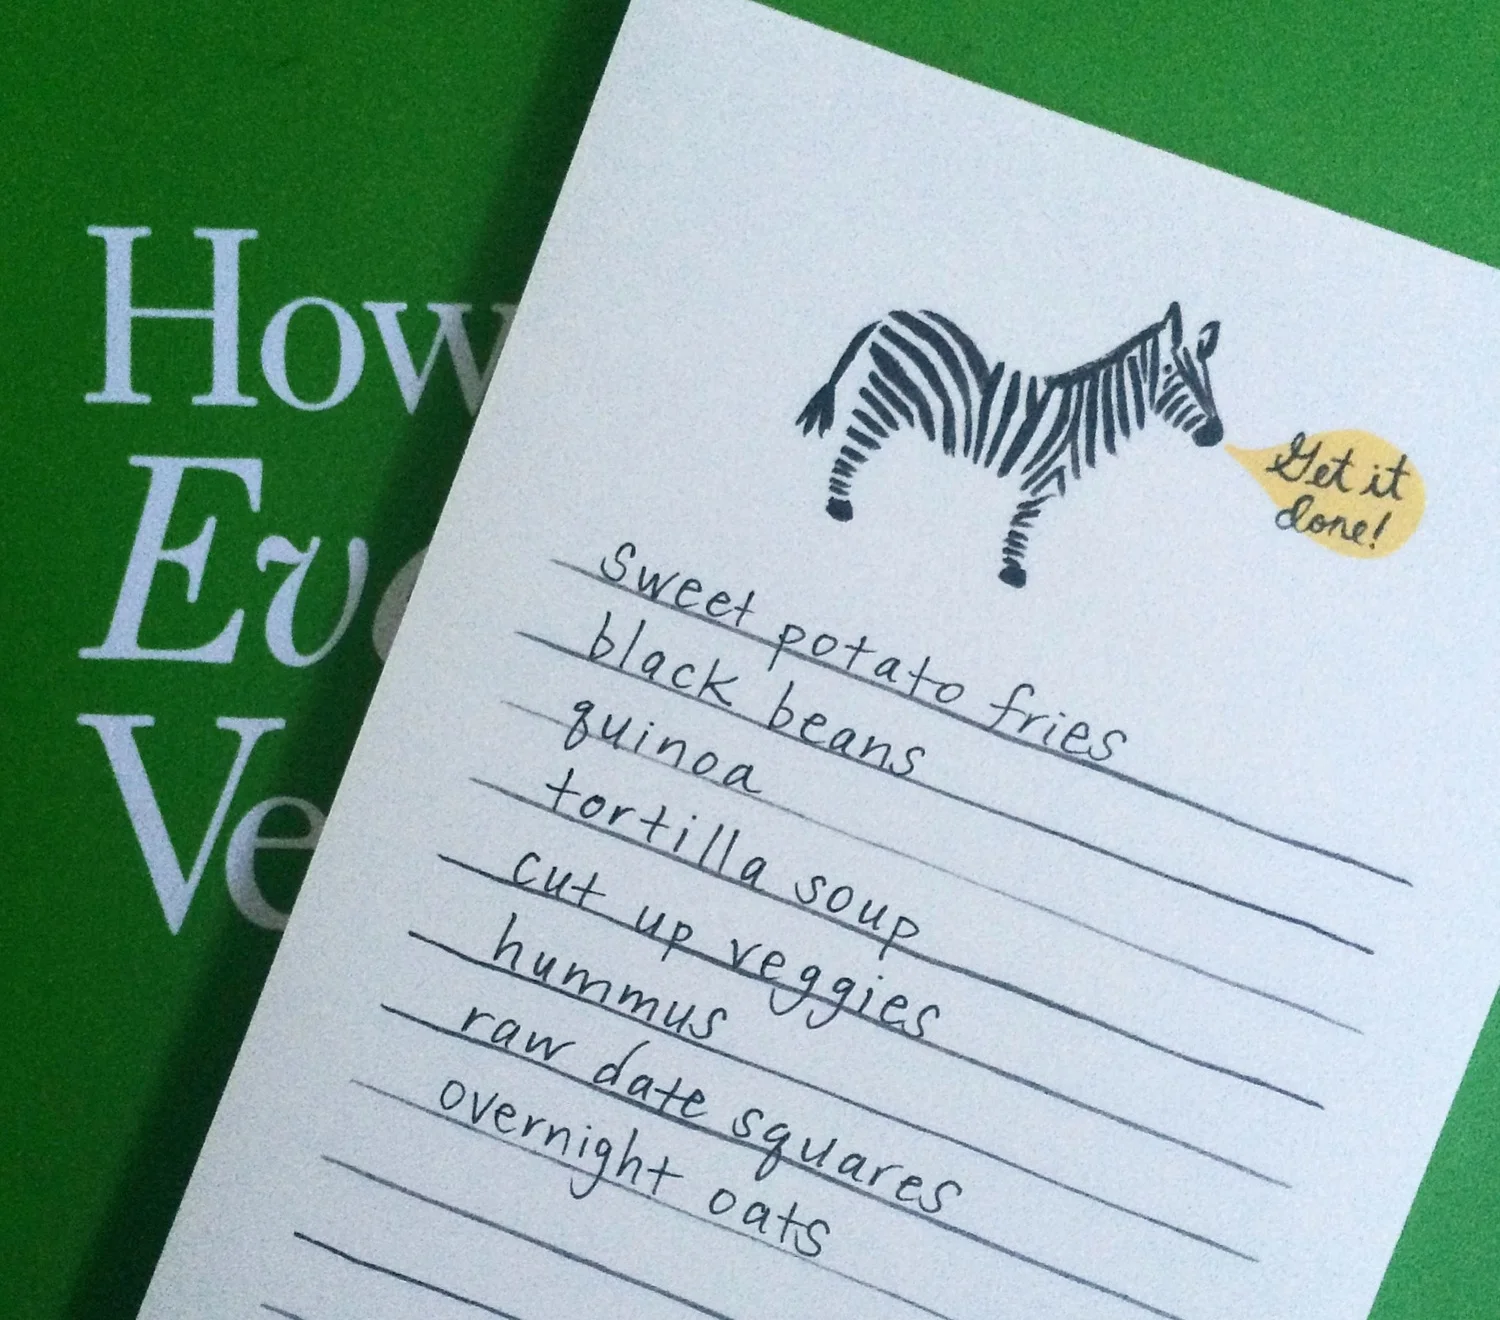 How
Ev
Ve
Get it
done!
sweet potato fries
black beans
quinoa
tortilla soup
cut up veggies
hummus
raw date squares
overnight oats